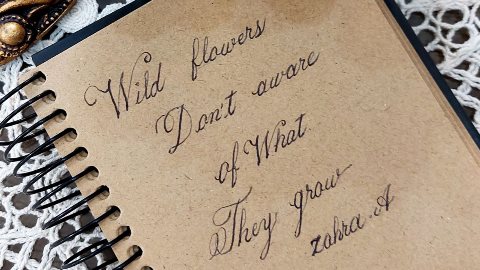 Wild flowers
Don't aware
of What
They grow
zahra.A